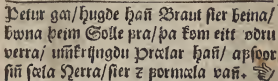 Petur gøa/hugde hañ Braut sier beina/
bwna þeim Golle pra/þa kom eitt odru
verra/ umkringdu Prælar hañ/ apsoor
siñ sæla Herra/sier ꝛ pormælo vañ.